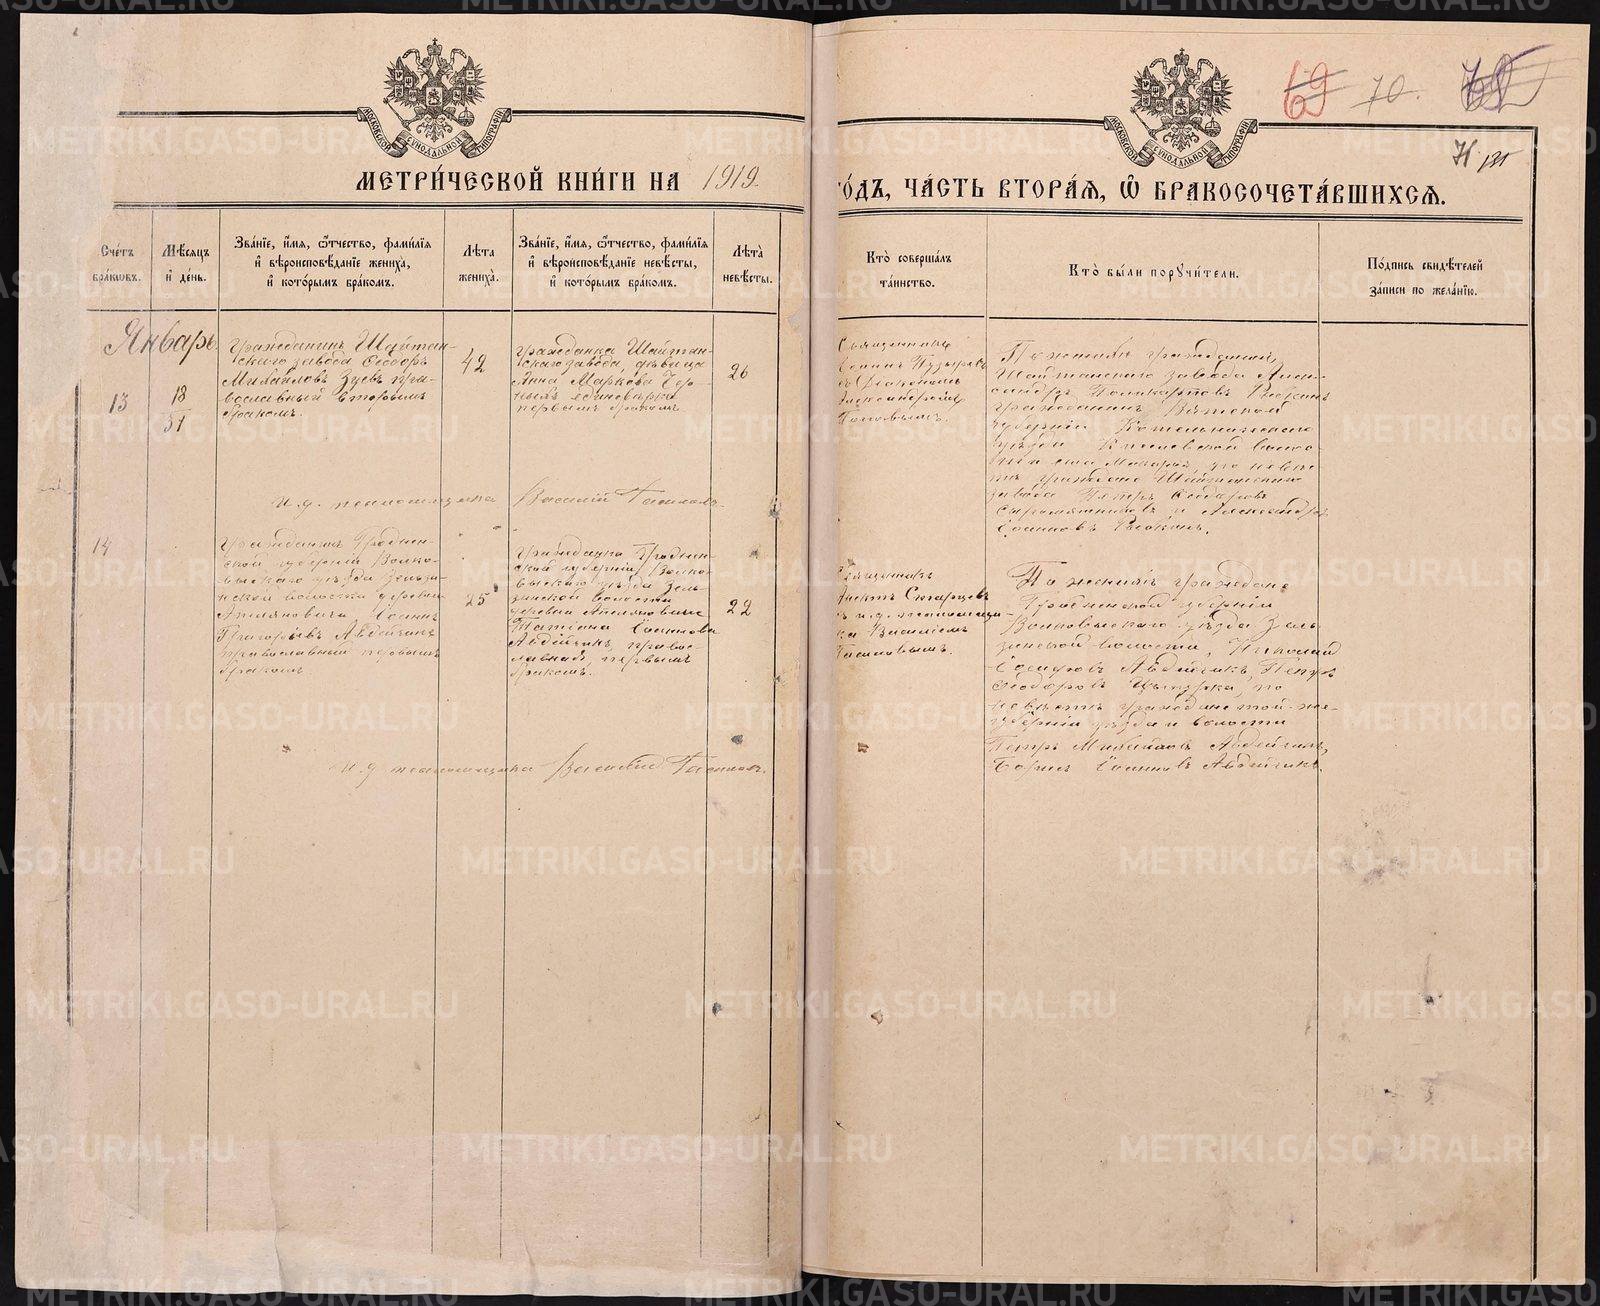 69 70.
71
МОСКОВСКОЙ СѴНОДАЛЬНОЙ ТИПОГРАФІИ
МОСКОВСКОЙ СѴНОДАЛЬНОЙ ТИПОГРАФІИ
МЕТРИ́ЧЕСКОЙ КНИ́ГИ НА 1919.
ГО́ДЪ, ЧА́СТЬ ВТОРА́Я, Ѽ БРАКОСОЧЕТА́ВШИХСЯ.
Сче́тъ бра́кωвъ.
Мѣ́сяцъ и҆ де́нь.
Зва́нїе, и҆́мя, ѻ҆́тчество, фами́лїя и҆ вѣроисповѣ́данїе жениха̀, и҆ кото́рымъ бра́комъ.
Лѣ́та жениха̀.
Зва́нїе, и҆́мя, ѻ҆́тчество, фами́лїя и҆ вѣроисповѣ́данїе невѣ́сты, и҆ кото́рымъ бра́комъ.
Лѣ́та невѣ́сты.
Кто̀ соверша́лъ та́инство.
Кто̀ бы́ли порꙋчи́тели.
По́дпись свидѣ́телей за́писи по жела́нїю.
Январь.
13
18
31
Гражданинъ Шайтан-
скаго завода Ѳеодоръ
Михайловъ Зуевъ пра-
вославный вторымъ
бракомъ.
42
Гражданка Шайтан-
скаго завода, дѣвица
Анна Маркова Чер-
ныхъ единовѣрка
первымъ бракомъ
26
Священникъ
Пузыревъ
съ Діакономъ
Александромъ
Поповымъ.
По женихѣ граждане,
Шайтанскаго завода Алек-
сандръ Поликарповъ
гражданинъ Вятской
губерніи Котельническаго
уѣзда волос-
по невѣс-
тѣ граждане Шайтанскаго
завода Петръ Ѳеодоровъ
Сыромятниковъ и Александръ
Іоанновъ
И. д. псаломщика Василій
14
Гражданинъ Гроднен-
ской губерніи Волко-
выскаго уѣзда Зельзи-
нской волости деревни
Іоаннъ
Григорьевъ Авдейчикъ
православный первымъ
бракомъ
25
Гражданка Гроднен-
ской губерніи Волко-
выскаго уѣзда Зель-
зинской волости
деревни
Татіана Іоаннова
Авдейчикъ, право-
славная, первымъ
бракомъ.
22
Священникъ
Старцевъ
съ и.д. псаломщи-
ка Василіемъ
По женихѣ граждане
Гродненской губерніи
Волковыскаго уѣзда Зель-
зинской волости, Николай
Іосифовъ Авдейчикъ, Петръ
Ѳеодоровъ по
невѣстѣ граждане той-же
губерніи уѣзда и волости
Петръ Михайловъ Авдейчикъ,
Борисъ Іоанновъ Авдейчикъ.
И. д. псаломщика Василій
METRIKI.GASO-URAL.RU